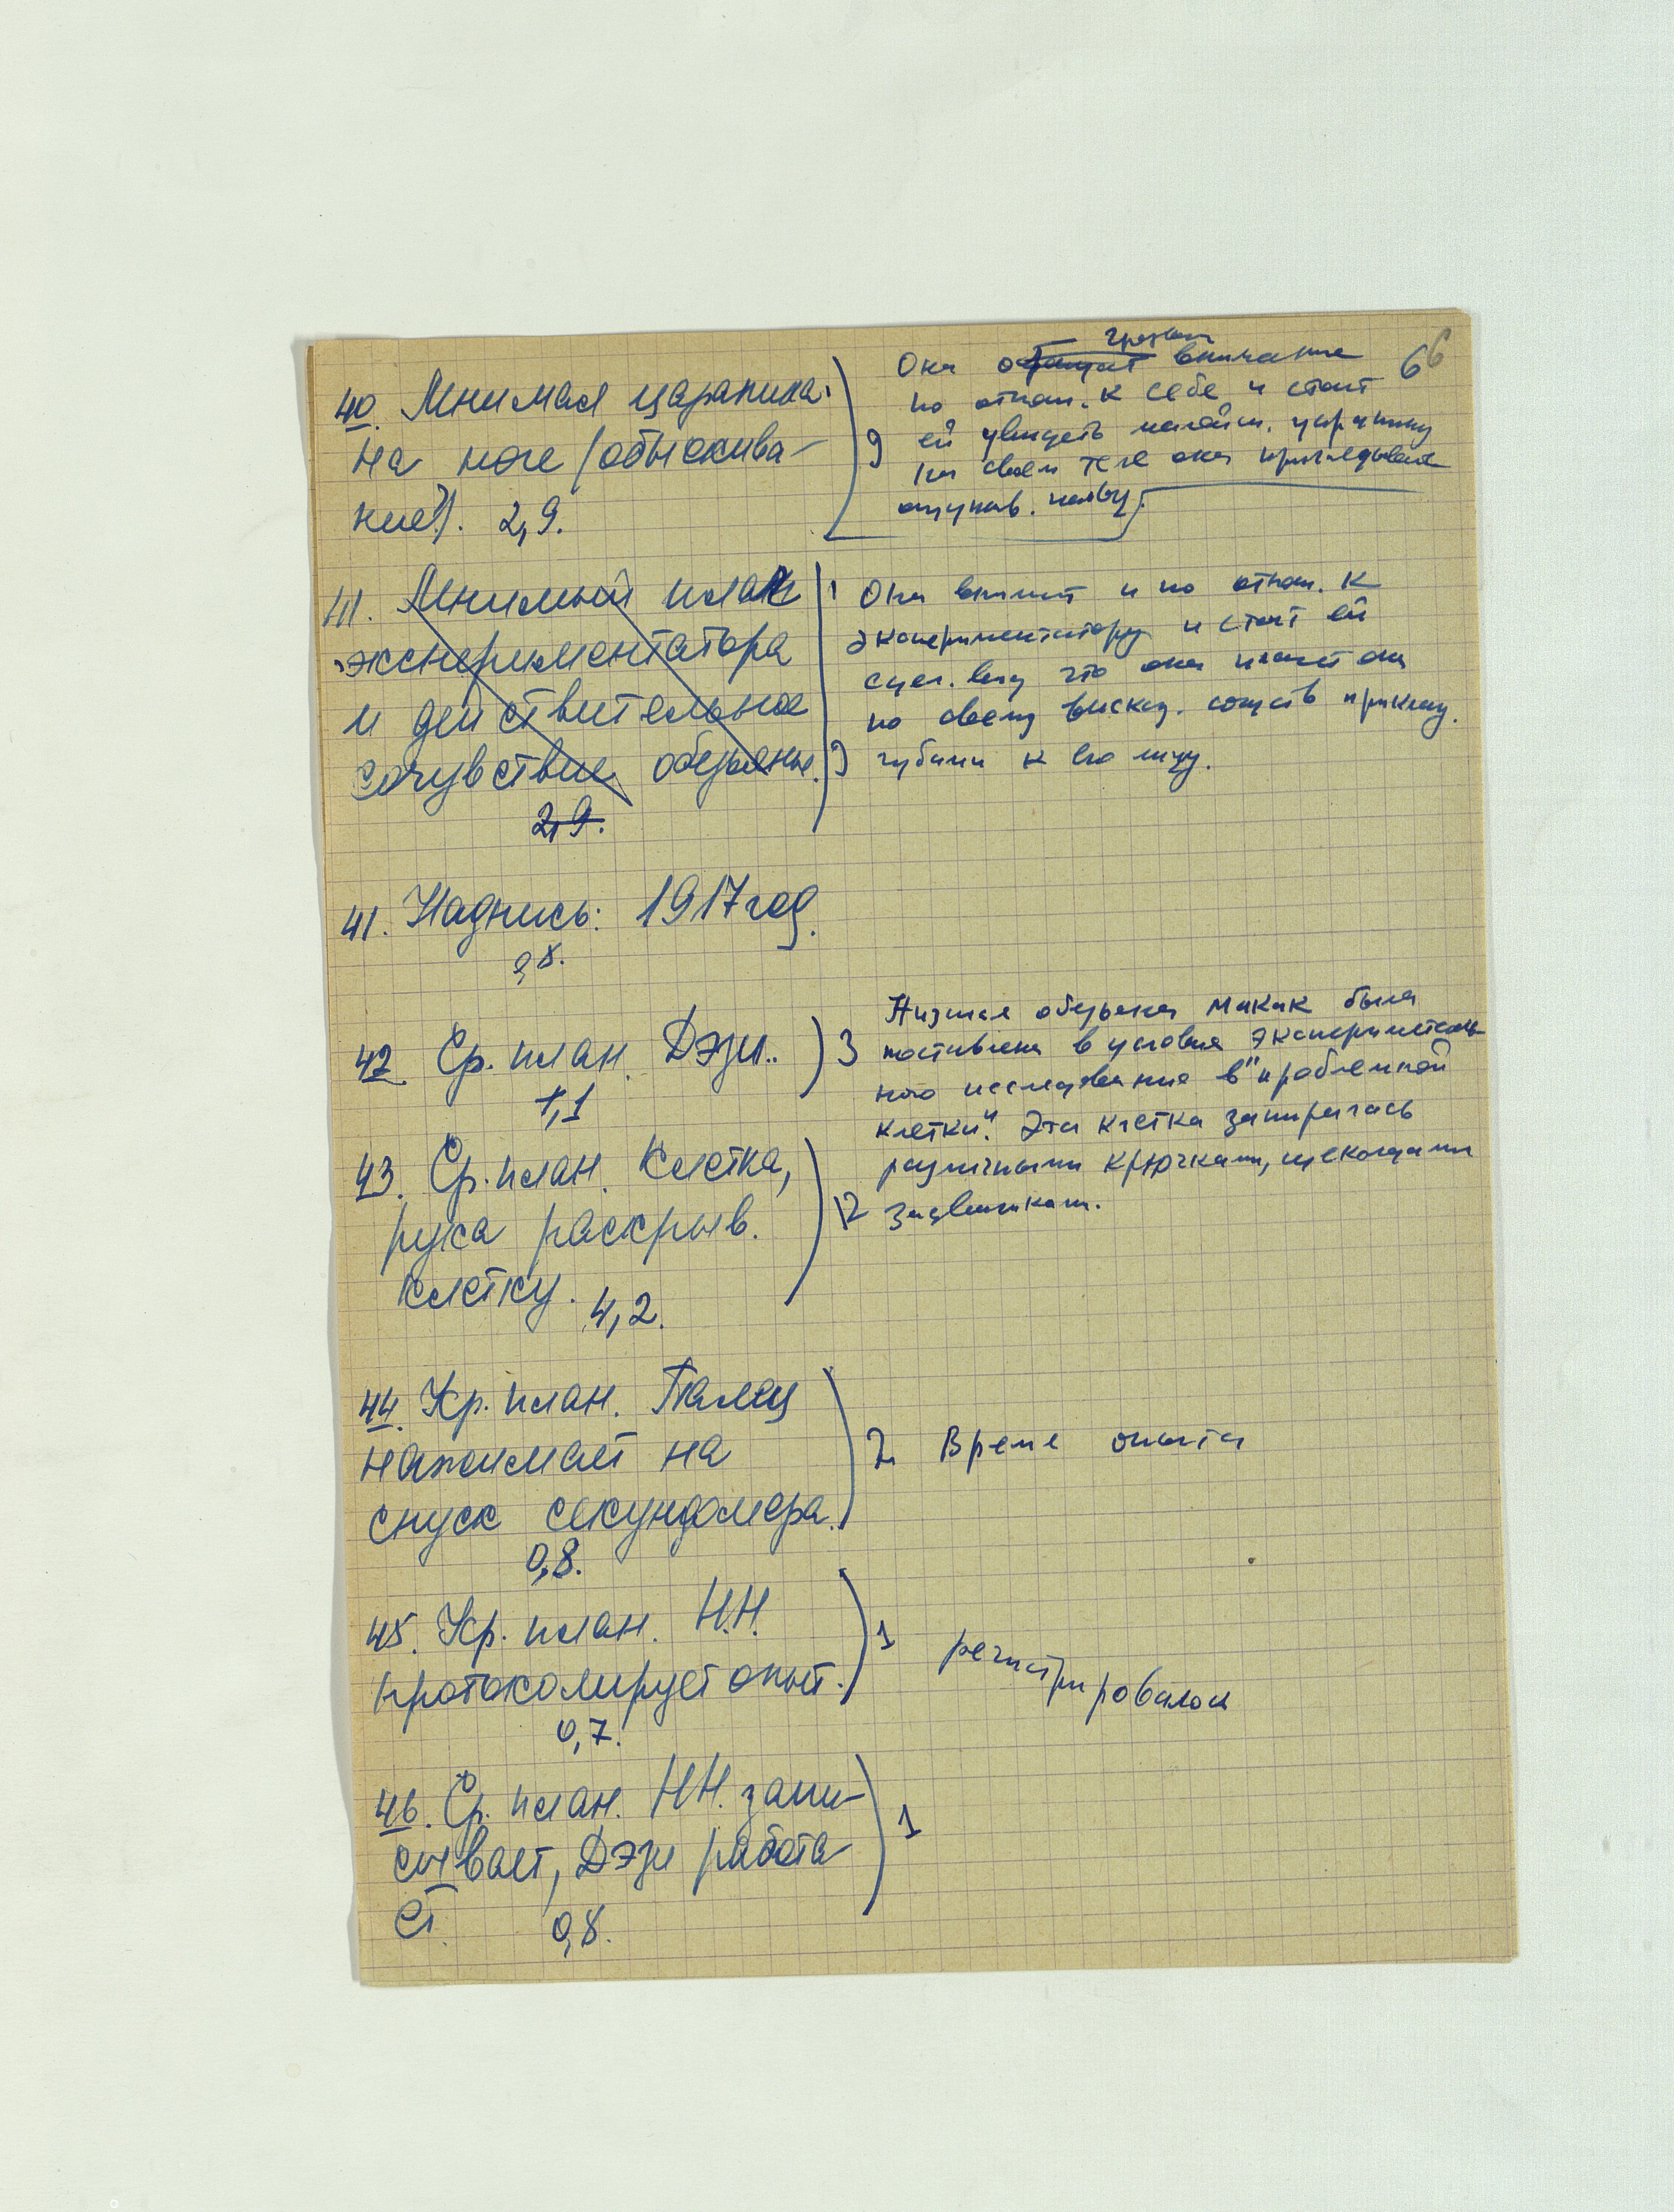 66
40. Мнимая царапина
на ноге (обыскива-
ние). 2,9.
9
Она обращает внимание
по отнош. к себе и стоит
ей увидеть малейш. царапину
на своем теле она
ощупыв.
41. Мнимый плач
экспериментатора
и действительное
сочувствие обезьяны.
2,9.
9
Она и по отнош. к
экспериментатору и стоит ей
сдел. вид что она плачет она
по своему высказ. сочувств прикасу.
губами к его лицу.
41. Надпись: 1917 год.
0,8.
42. Ср. план. Дэзи..
1,1
3
Низшая обезьяна макак была
поставлена в условия эксперименталь-
ного исследования в "проблемной
клетки". Эта клетка запиралась
различными крючками, щеколдами
задвижкам.
43. Ср. план. Клетка,
рука раскрыв.
клетку. 4,2.
12
44. Кр. план. Палец
нажимает на
спуск секундомера.
0,8.
2 Время опыта
45. Кр. план. Н.Н.
протоколирует опыт.
0,7.
1 регистрировалось
46. Ср. план. Н.Н. запи-
сывает, Дэзи работа-
ет
0,8.
1